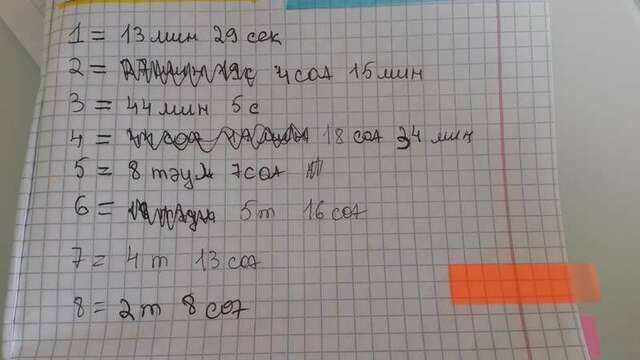 1 = 13 мин 29 сек
2 = 4 сағ 15 мин
3 = 44 мин 5 с
4 = 18 сағ 34 мин
5 = 8 тәул 7 сағ
6 = 5 т 16 сағ
7 = 4 т 13 сағ
8 = 2 т 8 сағ